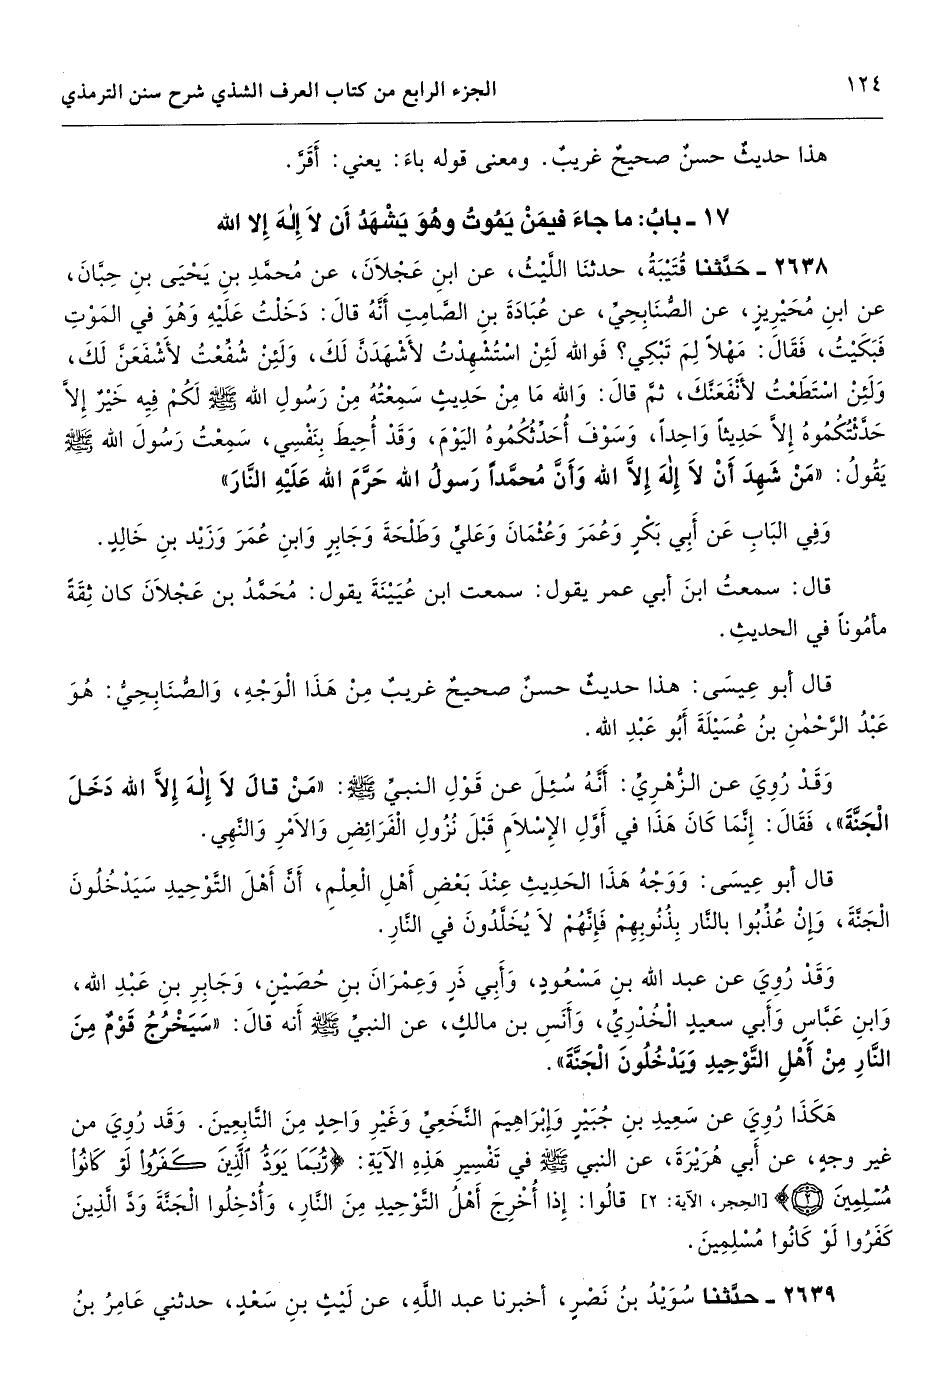 ١٢٤
الجزء الرابع من كتاب العرف الشذي شرح سنن الترمذي
هذا حديثٌ حسنٌ صحيحٌ غريبٌ. ومعنى قوله باءَ: يعني: أَقَرَّ.
١٧ - بابُ: ما جاءَ فيمَنْ يَمُوتُ وهُوَ يَشْهَدُ أن لاَ إِلٰهَ إلا الله
٢٦٣٨ - حَدَّثنا قُتَيْبَةُ، حدثنَا اللَّيْثُ، عن ابنِ عَجْلاَنَ، عن مُحمَّدِ بنِ يَحْيَى بنِ حِبَّانَ،
عن ابنِ مُحَيْرِيزٍ، عن الصُّنَابِحِيِّ، عن عُبَادَةَ بنِ الصَّامِتِ أَنَّهُ قالَ: دَخَلْتُ عَلَيْهِ وَهُوَ في المَوْتِ
فَبَكَيْتُ، فَقَالَ: مَهْلاً لِمَ تَبْكِي؟ فَوالله لَئِنْ اسْتُشْهِدْتُ لأشْهَدَنَّ لَكَ، وَلَئِنْ شُفِّعْتُ لأشْفَعَنَّ لَكَ،
وَلَئِنْ اسْتَطَعْتُ لأنْفَعَنَّكَ، ثمَّ قالَ: وَالله مَا مِنْ حَدِيثٍ سَمِعْتُهُ مِنْ رَسُولِ الله ﷺ لَكُمْ فِيهِ خَيْرٌ إلاَّ
حَدَّثْتُكُمُوهُ إلاَّ حَدِيثاً وَاحِداً، وَسَوْفَ أُحَدِّثُكُمُوهُ الْيَوْمَ، وَقَدْ أُحِيطَ بِنَفْسِي، سَمِعْتُ رَسُولَ الله ﷺ
يَقُولُ: «مَنْ شَهِدَ أَنْ لاَ إِلٰهَ إلاَّ الله وَأَنَّ مُحمَّداً رَسولُ الله حَرَّمَ الله عَلَيْهِ النَّارَ»
وَفِي البَابِ عَن أَبِي بَكْرٍ وَعُمَرَ وَعُثْمَانَ وَعَلِيٍّ وَطَلْحَةَ وَجَابِرٍ وَابنِ عُمَرَ وَزَيْد بنِ خَالِدٍ.
قال: سمعتُ ابنَ أبي عمر يقول: سمعت ابن عُيَيْنَةَ يقول: مُحَمَّدُ بن عَجْلاَنَ كان ثِقَةً
مأمُوناً في الحديثِ.
قال أبو عِيسَى: هذا حديثٌ حسنٌ صحيحٌ غريبٌ مِنْ هَذَا الْوَجْهِ، وَالصُّنَابِحِيُّ: هُوَ
عَبْدُ الرَّحْمٰنِ بنُ عُسَيْلَةَ أَبُو عَبْدِ الله.
وَقَدْ رُوِيَ عن الزُّهْرِيِّ: أَنَّهُ سُئِلَ عن قَوْلِ النبيِّ ﷺ: «مَنْ قالَ لاَ إِلٰهَ إلاَّ الله دَخَلَ
الْجَنَّةَ»، فَقَالَ: إِنَّمَا كَانَ هَذَا في أَوَّلِ الإسْلاَمِ قَبْلَ نُزُولِ الْفَرَائِضِ وَالأمْرِ وَالنَّهْيِ.
قال أبو عِيسَى: وَوَجْهُ هَذَا الحَدِيثِ عِنْدَ بَعْضِ أَهْلِ الْعِلْمِ، أَنَّ أَهْلَ التَّوْحِيدِ سَيَدْخُلُونَ
الْجَنَّةَ، وَإِنْ عُذِّبُوا بالنَّارِ بِذُنُوبِهِمْ فَإِنَّهُمْ لاَ يُخَلَّدُونَ في النَّارِ.
وَقَدْ رُوِيَ عن عبد الله بنِ مَسْعُودٍ، وَأَبِي ذَرٍ وَعِمْرَانَ بنِ حُصَيْنٍ، وَجَابِرِ بنِ عَبْدِ الله،
وَابنِ عَبَّاسٍ وَأبي سعيدٍ الْخُدْرِيِّ، وَأَنَسِ بن مالكٍ، عن النبيِّ ﷺ أنه قالَ: «سَيَخْرُجُ قَوْمٌ مِنَ
النَّارِ مِنْ أَهْلِ التَّوْحِيدِ وَيَدْخُلُونَ الْجَنَّةَ».
هَكَذَا رُوِيَ عن سَعِيدِ بنِ جُبَيْرٍ وَإِبْرَاهِيمَ النَّخَعِيِّ وَغَيْرِ وَاحِدٍ مِنَ التَّابِعِينَ. وَقَد رُوِيَ من
غير وجهٍ، عن أَبِي هُرَيْرَةَ، عن النبي ﷺ في تَفْسِيرِ هَذِهِ الآيَةِ: ﴿رُّبَمَا يَوَدُّ ٱلَّذِينَ كَفَرُواْ لَوْ كَانُواْ
مُسْلِمِينَ ۝٢﴾ [الحجر، الآية: ٢] قالُوا: إِذَا أُخْرِجَ أَهْلُ التَّوْحِيدِ مِنَ النَّارِ، وَأُدْخِلُوا الْجَنَّةَ وَدَّ الَّذِينَ
كَفَرُوا لَوْ كَانُوا مُسْلِمِينَ.
٢٦٣٩ - حدَّثنا سُوَيْدُ بنُ نَصْرٍ، أخبرنا عبد اللَّهِ، عن لَيْثِ بنِ سَعْدٍ، حدثني عَامِرُ بنُ